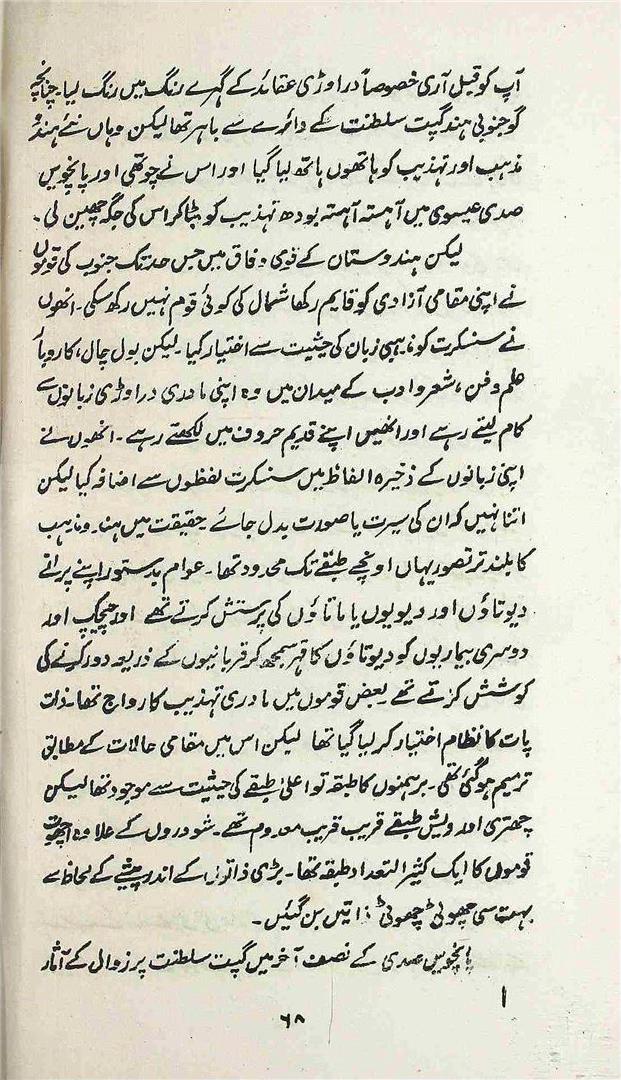 آپ کو قبل آری خصوصاً دراوڑی عقائد کے گہرے رنگ میں رنگ لیا۔ چنانچہ
گو جنوبی ہند گپت سلطنت کے دائرے سے باہر تھا لیکن وہاں نئے ہندو
مذہب اور تہذیب کو ہاتھوں ہاتھ لیا گیا اور اس نے چوتھی اور پانچویں
صدی عیسوی میں آہستہ آہستہ بودھ تہذیب کو ہٹا کر اس کی جگہ چھین لی۔
لیکن ہندوستان کے قومی وفاق میں جس حد تک جنوب کی قوموں
نے اپنی مقامی آزادی کو قایم رکھا شمال کی کوئی قوم نہیں رکھ سکی۔ انھوں
نے سنسکرت کو مذہبی زبان کی حیثیت سے اختیار کیا۔ لیکن بول چال، کاروبار
علم و فن، شعر و ادب کے میدان میں وہ اپنی مادری دراوڑی زبانوں سے
کام لیتے رہے اور انھیں اپنے قدیم حروف میں لکھتے رہے۔ انھوں نے
اپنی زبانوں کے ذخیرہ الفاظ میں سنسکرت لفظوں سے اضافہ کیا لیکن
اتنا نہیں کہ ان کی سیرت یا صورت بدل جائے۔ حقیقت میں ہندو مذہب
کا بلند تر تصور یہاں اونچے طبقے تک محدود تھا۔ عوام بدستور اپنے پرانے
دیوتاؤں اور دیویوں یا ماتاؤں کی پرستش کرتے تھے اور چیچک اور
دوسری بیماریوں کو دیوتاؤں کا قہر سمجھ کر قربانیوں کے ذریعہ دور کرنے کی
کوشش کرتے تھے۔ بعض قوموں میں مادری تہذیب کا رواج تھا۔ ذات
پات کا نظام اختیار کر لیا گیا تھا لیکن اس میں مقامی حالات کے مطابق
ترمیم ہو گئی تھی۔ برہمنوں کا طبقہ تو اعلیٰ طبقے کی حیثیت سے موجود تھا لیکن
چھتری اور ویش طبقے قریب قریب معدوم تھے۔ شودروں کے علاوہ اچھوت
قوموں کا ایک کثیر التعداد طبقہ تھا۔ بڑی ذاتوں کے اندر پیشے کے لحاظ سے
بہت سی چھوٹی چھوٹی ذاتیں بن گئیں۔
پانچویں صدی کے نصف آخر میں گپت سلطنت پر زوال کے آثار
۶۸